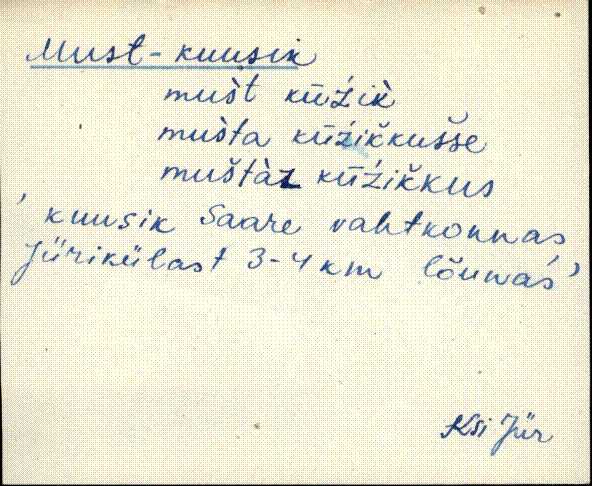 Must-kuusik
mušt kūźik̀
mušta kūźikkušše
muštàz kūźikkus
' kuusik Saare vahtkonnas
Jürikülast 3-4 km lõunas '
Ksi Jür